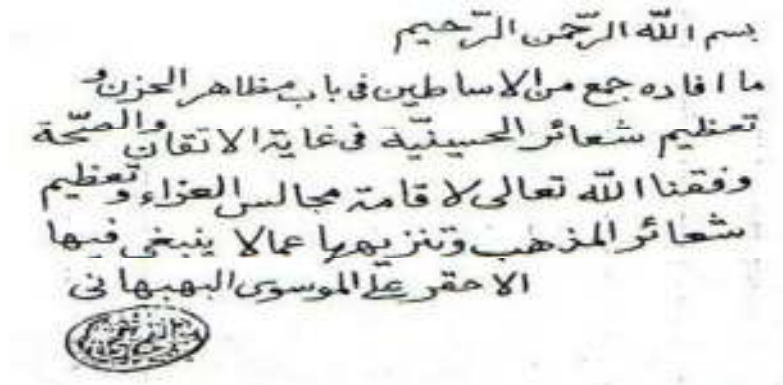 بسم اللّه الرّحمن الرّحيم
ما افاده جمع من الاساطين فى باب مظاهر الحزن و
تعظيم شعائر الحسينيّة فى غاية الاتقان والصحّة
وفقنا اللّه تعالى لاقامة مجالس العزاء وتعظيم
شعائر المذهب وتنزيهها عمالا ينبغى فيها
الاحقر علىّ الموسوى البهبهانى